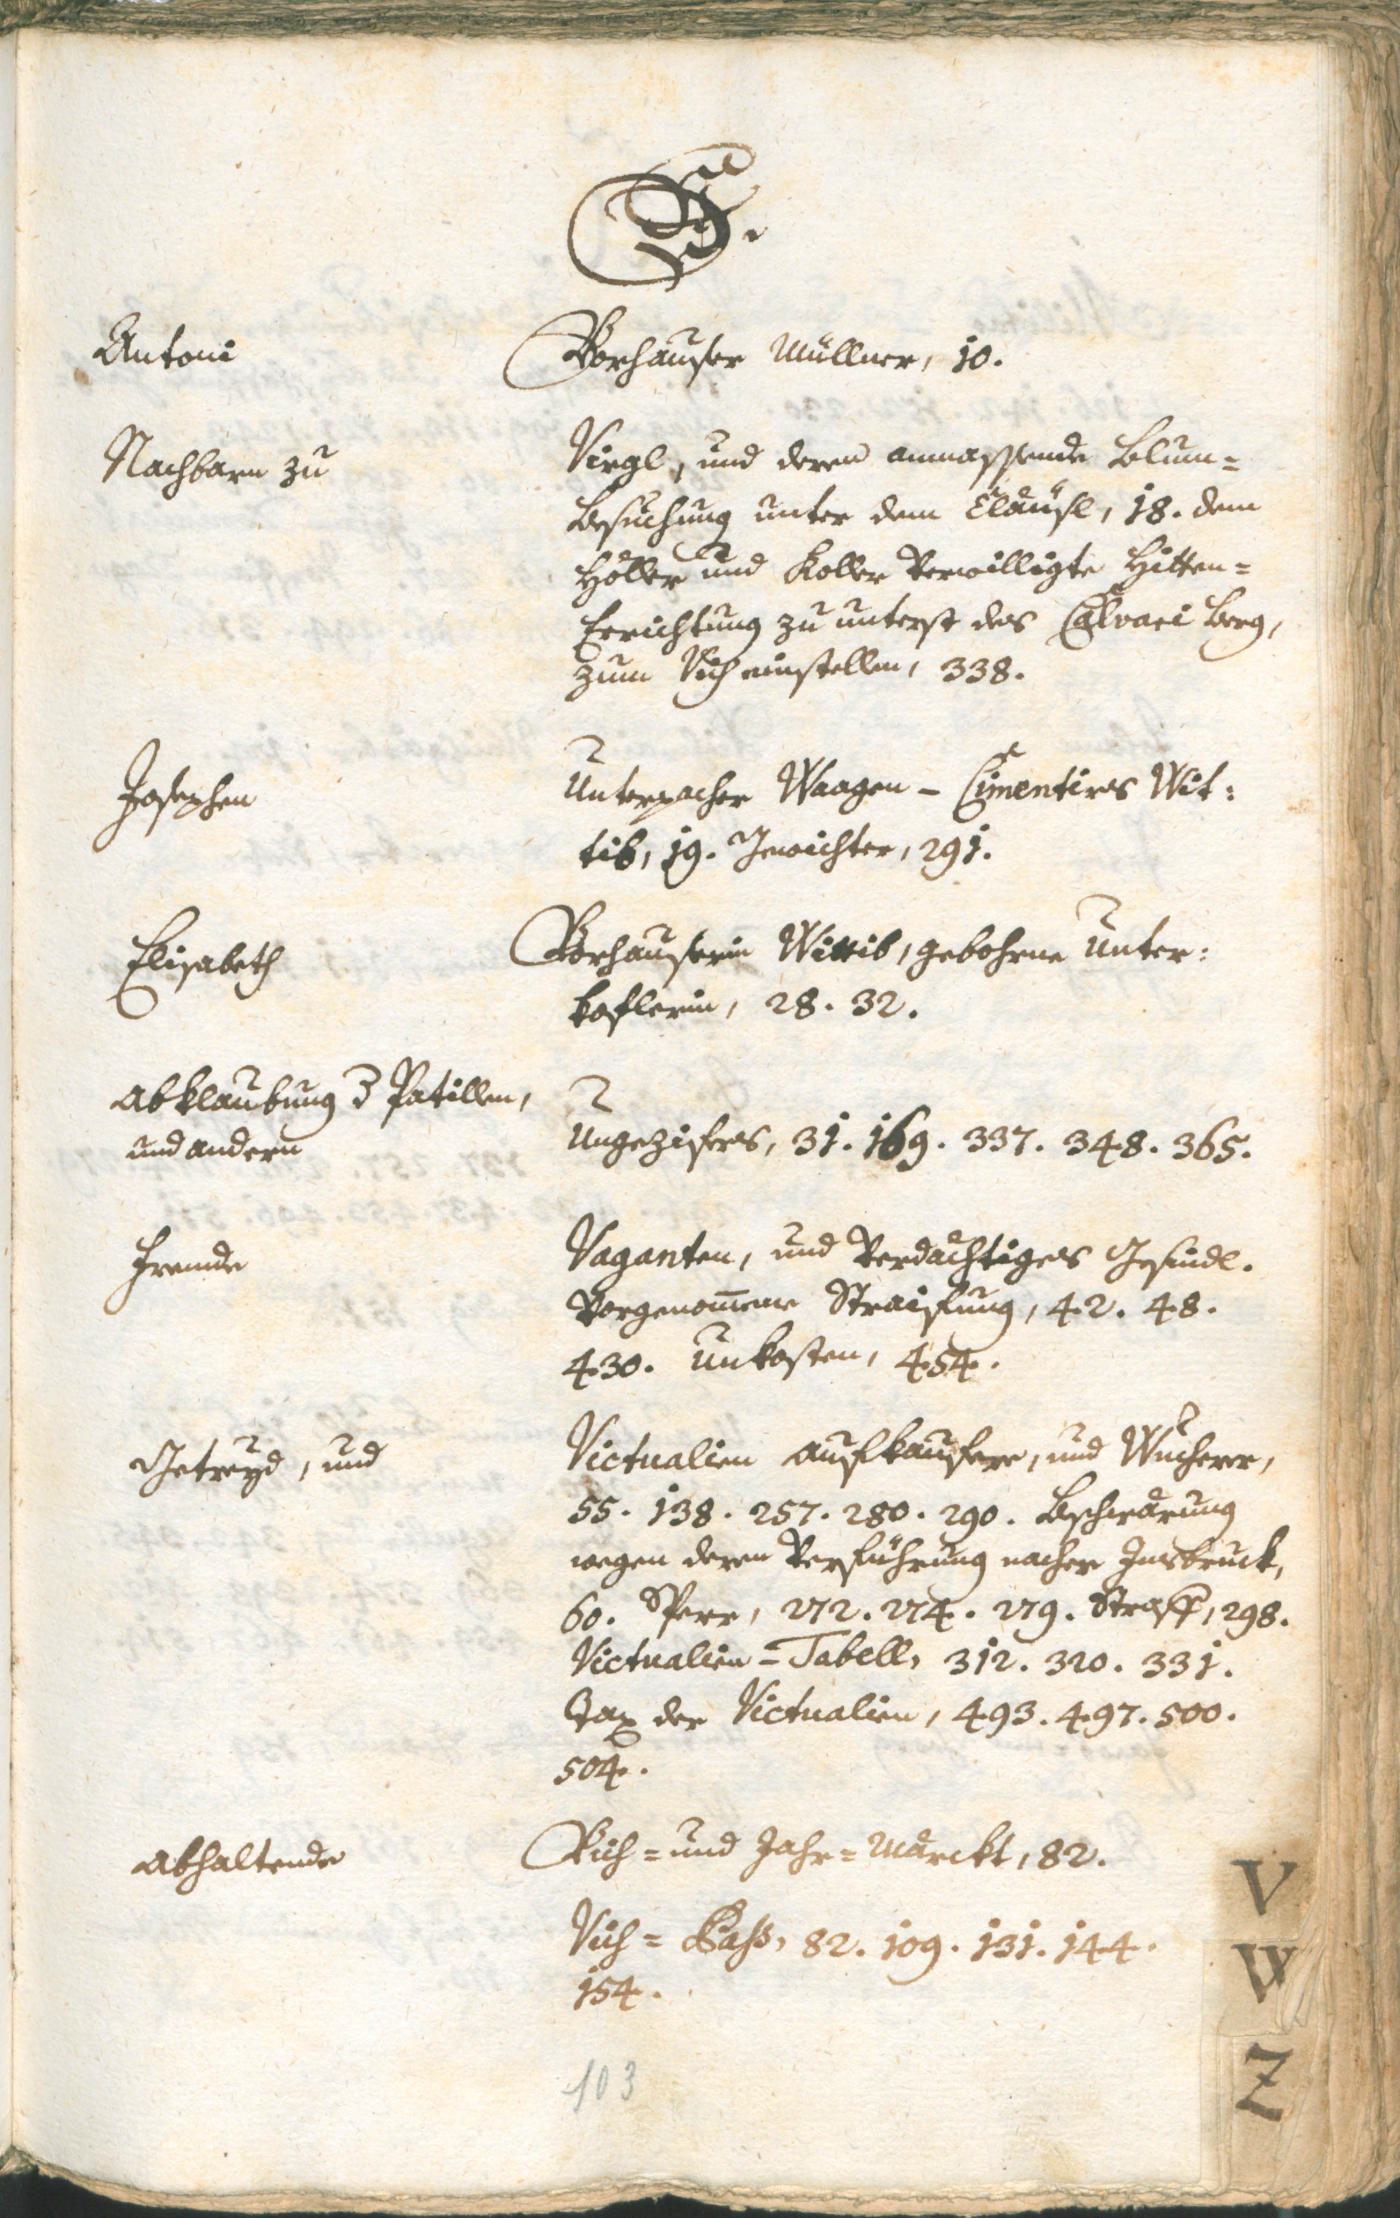 V.
Antoni Vorhauser Müllner, 10.
Nachbarn zu Virgl, und deren anmassende Blum=
besuchung unter dem Cläusl, 18. dem
Höller und Koller verwilligte Hitten=
Errichtung zu unterst des Calvari Berg,
zum Vich einstellen, 338.
Josephen Unterpacher Waagen - Cimentirs Wit:
tib, 19. Gewichter, 291.
Elisabeth Vorhauserin Wittib, gebohrne Unter:
koflerin, 28. 32.
Abklaubung d Patillen,
und andern Ungezifers, 31. 169. 337. 348. 365.
Fremde Vaganten, und Verdächtiges Gesindl.
Vorgenom̄ene Straiffung, 42. 48.
430. Unkosten, 454.
Getreyd, und Victualien Aufkaufere, und Wucherer,
55. 138. 257. 280. 290. Beschwärung
wegen deren Verführung nacher Insbruck,
60. Sperr, 272. 274. 279. Straff, 298.
Victualien=Tabell, 312. 320. 331.
Tax der Victualien, 493. 497. 500.
504.
Abhaltende Vich= und Jahr=Märckt, 82.
Vich= Päß, 82. 109. 131. 144.
154.
103
V
W
Z